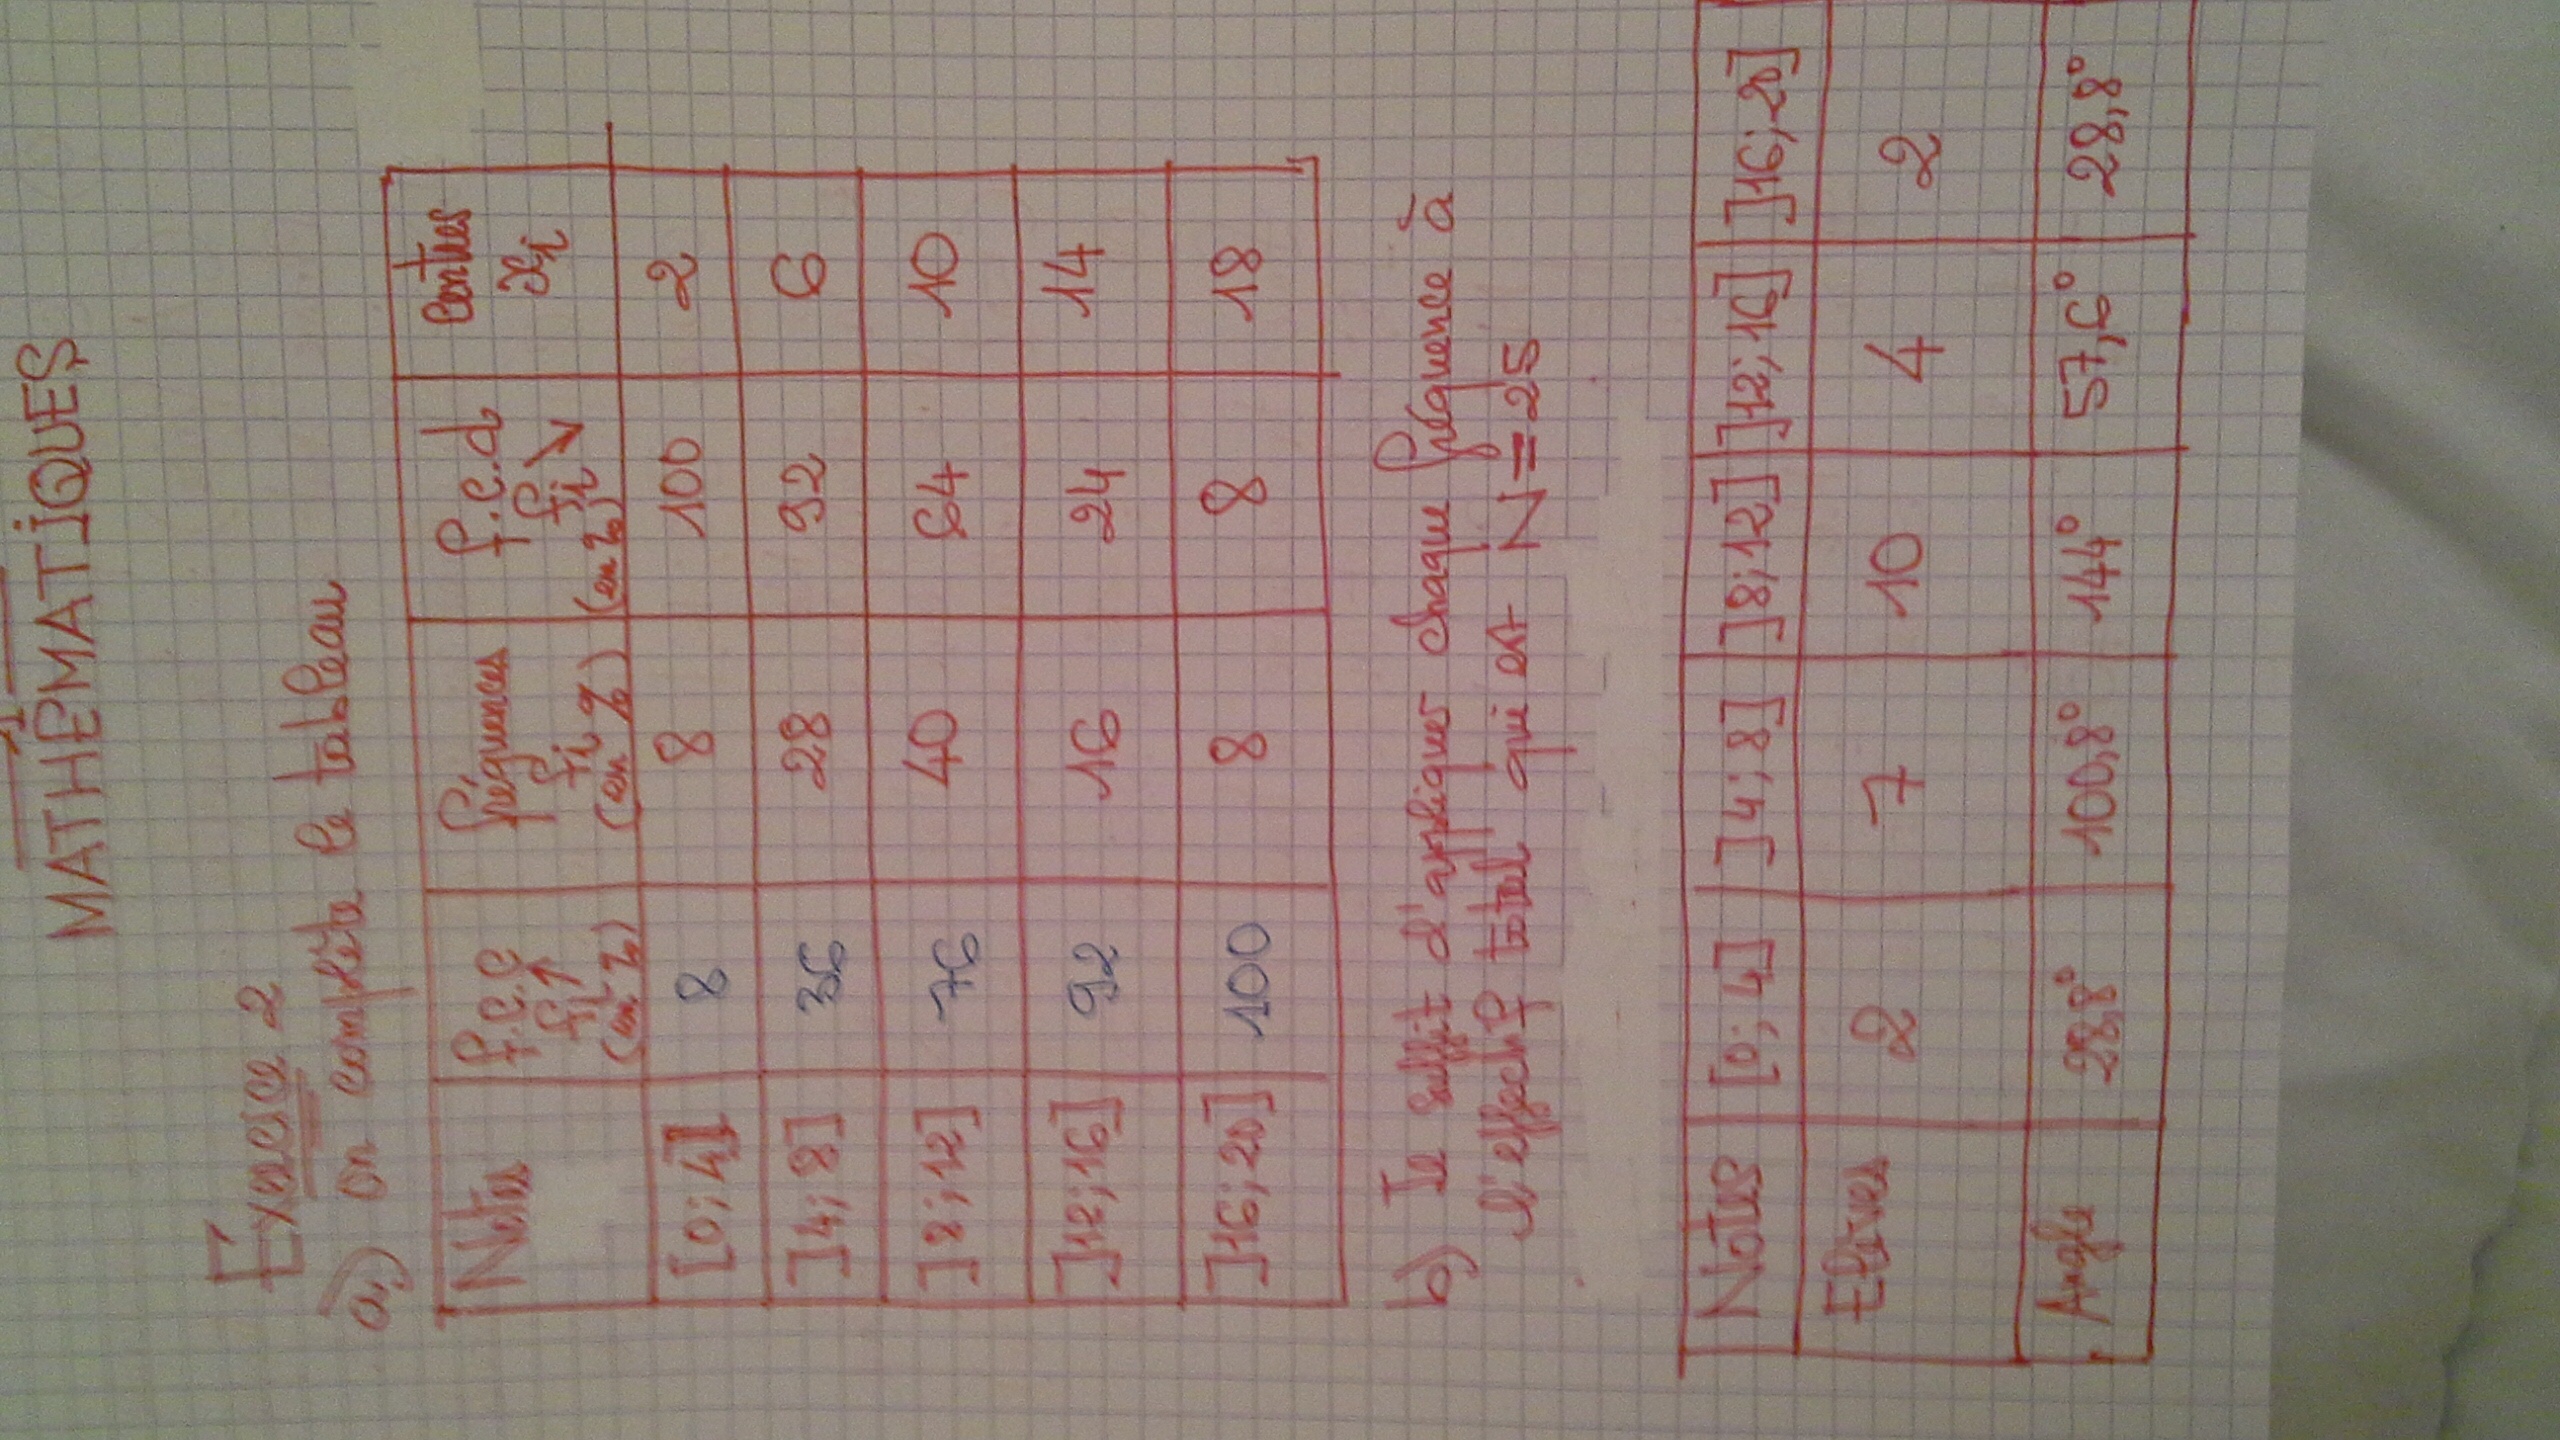 MATHEMATIQUES
Exercice 2
a) on complète le tableau
Notes f.c.c fi↑ (en %) fréquences fi (en %) f.c.d fi↘ (en %) Centres xi
[0; 4] 8 8 100 2
]4; 8] 36 28 92 6
]8; 12] 76 40 64 10
]12; 16] 92 16 24 14
]16; 20] 100 8 8 18
b) Il suffit d'appliquer chaque fréquence à
l'effectif total qui est N=25
Notes [0; 4] ]4; 8] ]8; 12] ]12; 16] ]16; 20]
Elèves 2 7 10 4 2
Angle 28,8° 100,8° 144° 57,6° 28,8°